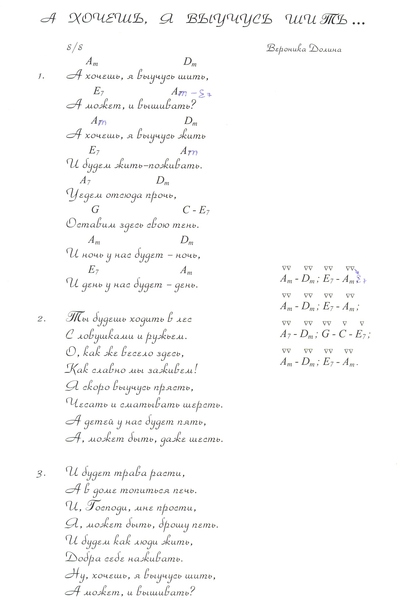 А ХОЧЕШЬ, Я ВЫУЧУСЬ ШИТЬ...
8/8
Вероника Долина
Am Dm
1. А хочешь, я выучусь шить,
E7 Am - E7
А может, и вышивать?
Am Dm
А хочешь, я выучусь жить
E7 Am
И будем жить-поживать.
A7 Dm
Уедем отсюда прочь,
G C - E7
Оставим здесь свою тень.
Am Dm
И ночь у нас будет – ночь,
E7 Am
И день у нас будет – день.
Am - Dm; E7 - Am E7
Am - Dm; E7 - Am;
A7 - Dm; G - C - E7;
Am - Dm; E7 - Am.
2. Ты будешь ходить в лес
С ловушками и ружьем.
О, как же весело здесь,
Как славно мы заживем!
Я скоро выучусь прясть,
Чесать и сматывать шерсть.
А детей у нас будет пять,
А, может быть, даже шесть.
3. И будет трава расти,
А в доме топиться печь.
И, Господи, мне прости,
Я, может быть, брошу петь.
И будем как люди жить,
Добра себе наживать.
Ну, хочешь, я выучусь шить,
А может, и вышивать?